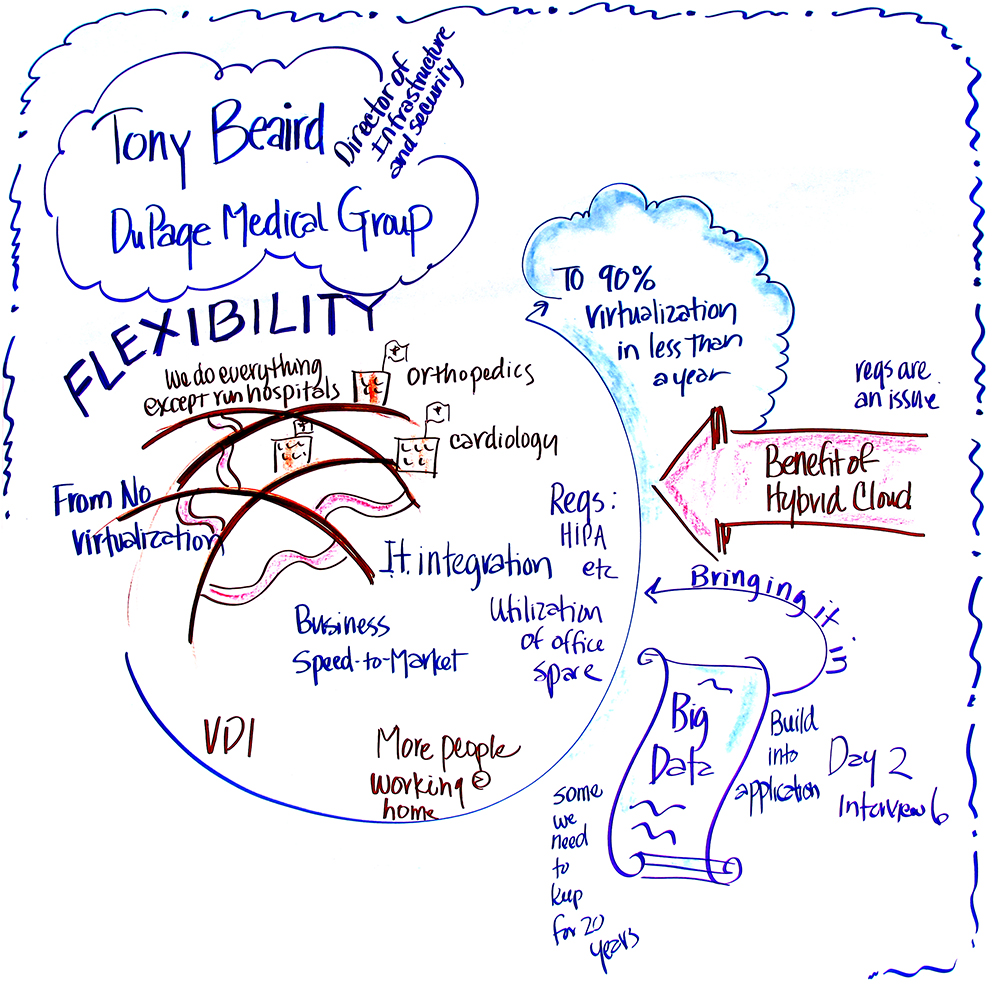 Tony Beaird
Director of
Infrastructure
and security
DuPage Medical Group
FLEXIBILITY
we do everything
except run hospitals
orthopedics
cardiology
From No
virtualization
To 90%
virtualization
in less than
a year
reqs are
an issue
Benefit of
Hybrid Cloud
I.t. integration
Reqs:
HIPA
etc
Business
Speed-to-Market
Utilization
of office
spare
VDI
More people
working @
home
Bringing it
in
Big
Data
Build
into
application
some
we
need
to
kup
for 20
years
Day 2
Interview 6